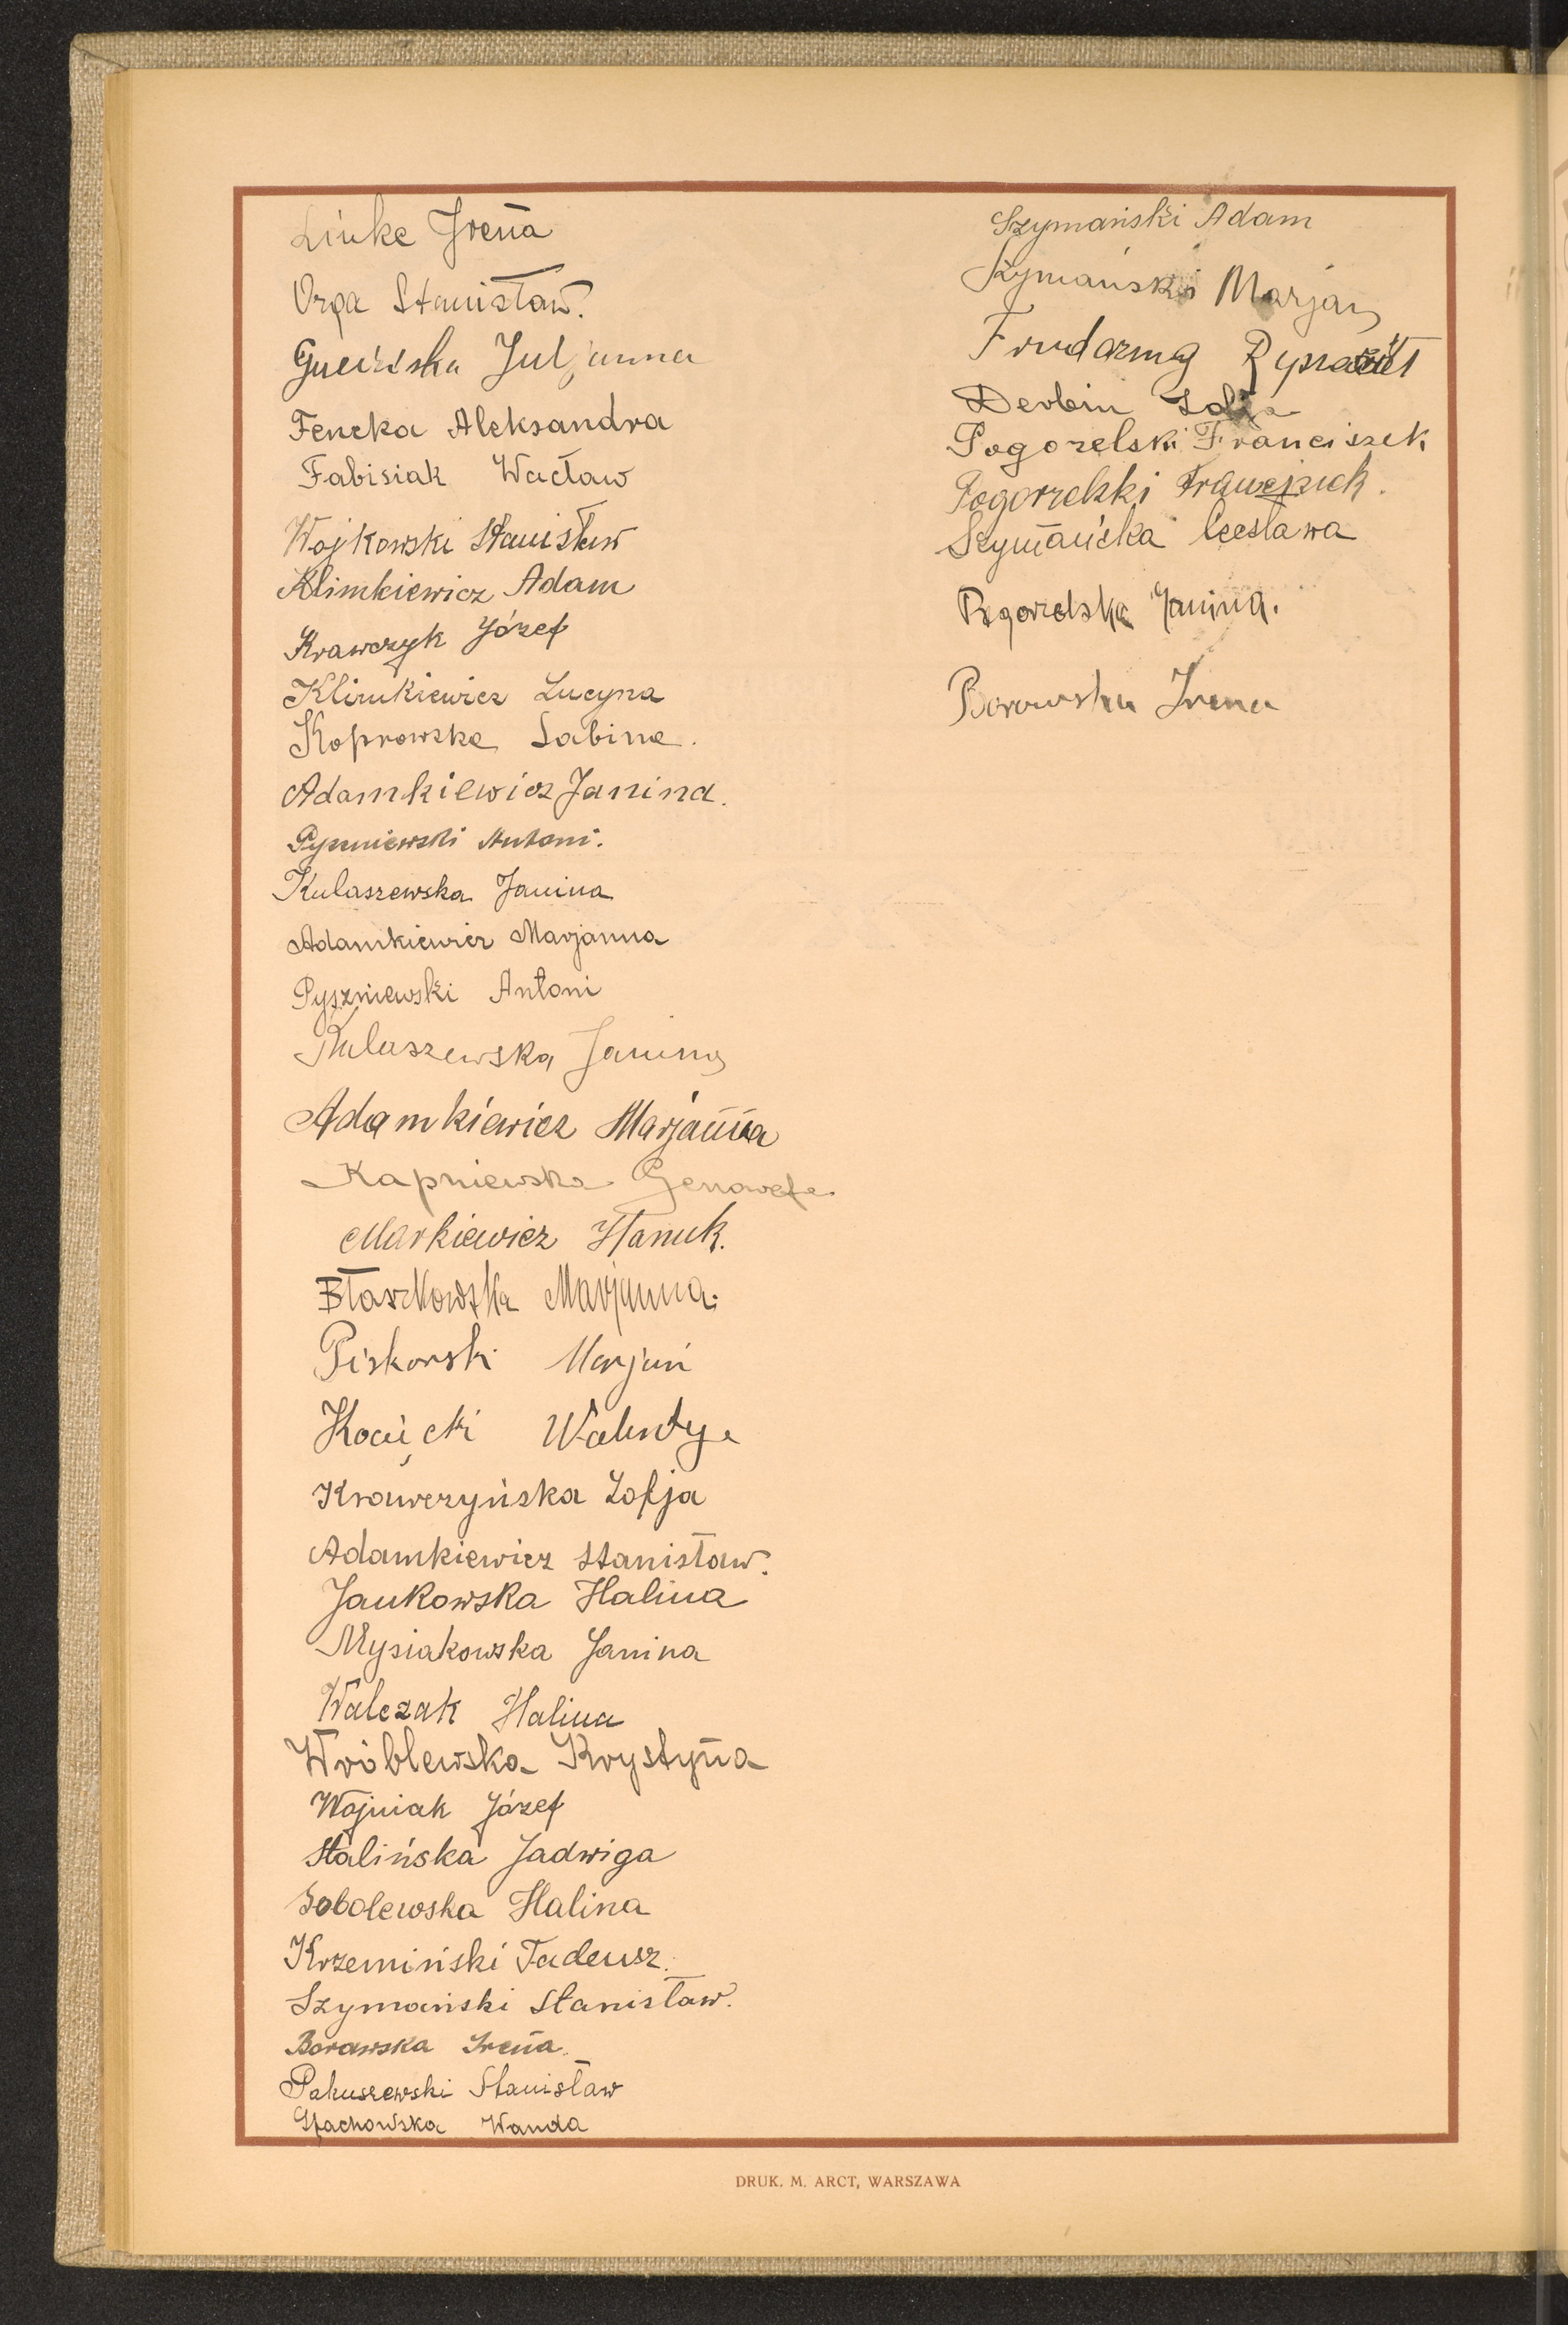 Linke Irena
Orga Stanisław.
Juljanna
Fencka Aleksandra
Fabisiak Wacław
Wojkowski Stanisław
Klimkiewicz Adam
Krawczyk Józef
Klimkiewicz Lucyna
Koprowska Sabina.
Adamkiewicz Janina.
Pyszniewski Antoni.
Kulaszewska Janina
Adamkiewicz Marjanna
Pyszniewski Antoni
Kulaszewska Janina
Adamkiewicz Marjanna
Kapniewska Genowefa
Markiewicz Hanuk.
Błaszkowska Marjanna.
Piskorski Marjan
Walenty
Krawczyńska Zofja
Adamkiewicz Stanisław.
Jankowska Halina
Mysiakowska Janina
Walczak Halina
Wróblewska Krystyna
Wojniak Józef
Stalińska Jadwiga
Sobolewska Halina
Krzemiński Tadeusz.
Szymański Stanisław.
Borowska Irena.
Pakuszewski Stanisław
Stachowska Wanda
Szymański Adam
Szymański Marjan
Derbin Zofja
Pogorzelski Franciszek
Pogorzelski Franciszek.
Szymańska Czesława
Pogorzelska Janina.
Borowska Irena
DRUK. M. ARCT, WARSZAWA